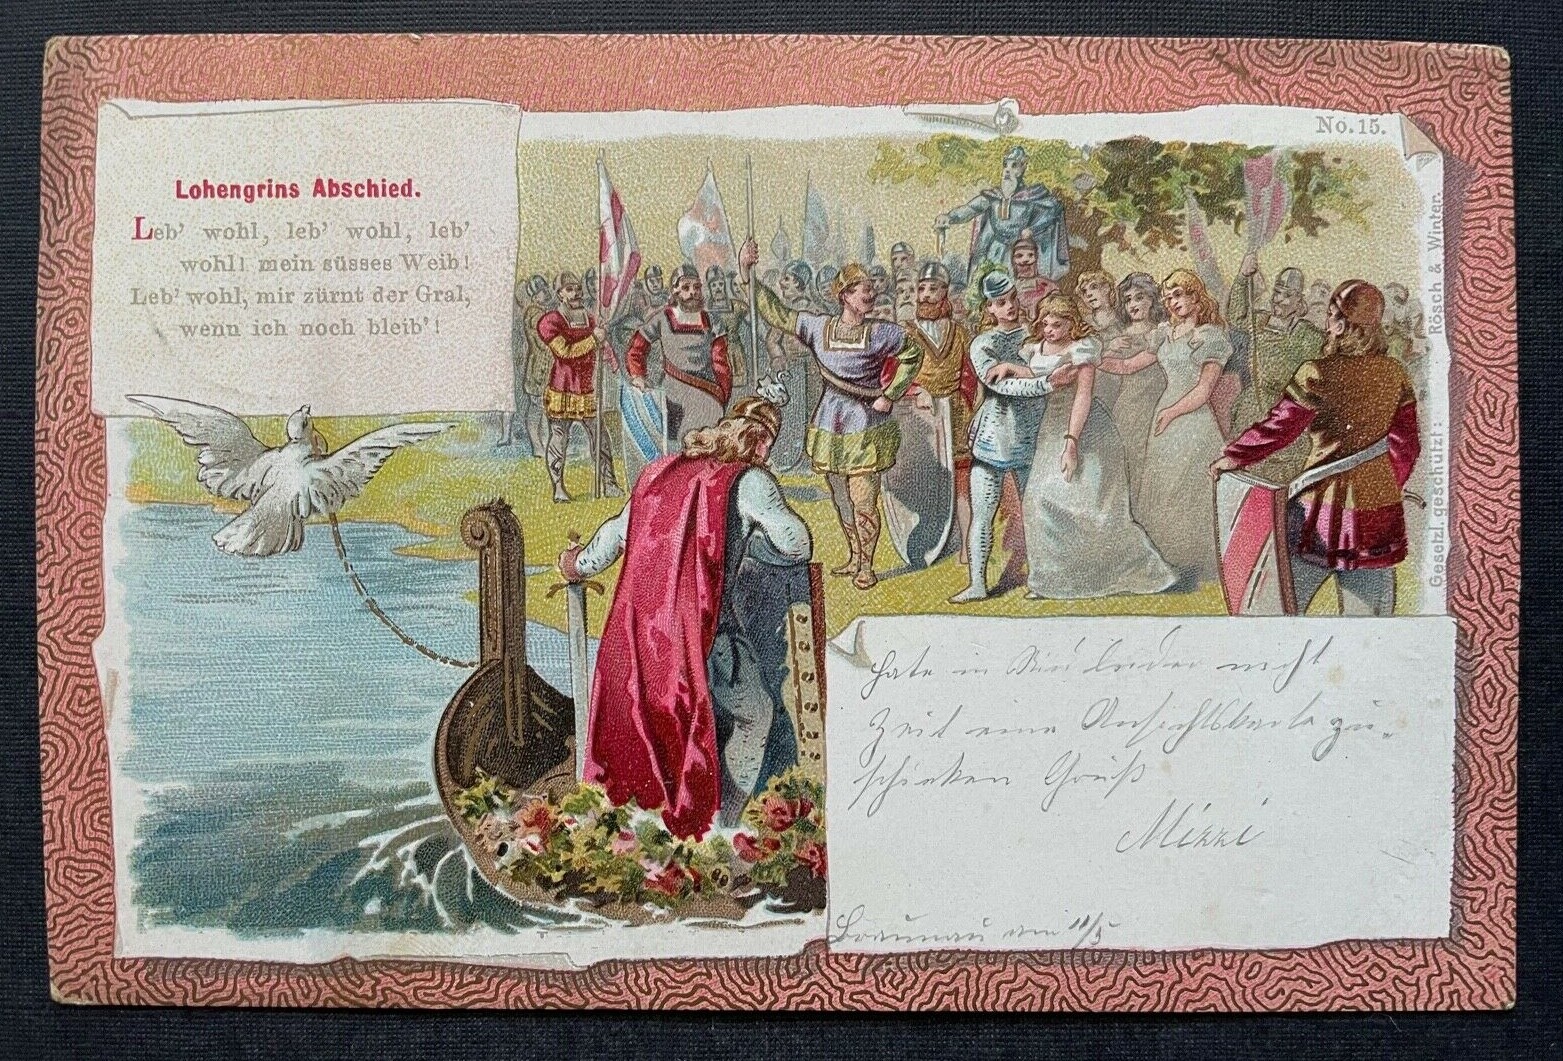 No. 15.
Lohengrins Abschied.
Leb' wohl, leb' wohl, leb'
wohl! mein süsses Weib!
Leb' wohl, mir zürnt der Gral,
wenn ich noch bleib'!
Gesetzl. geschützt: Rösch & Winter.
Hate in Wien leider nicht
Zeit eine Ansichtskarte zu
schicken Gruß
Mizzi
Braunau am 11/5